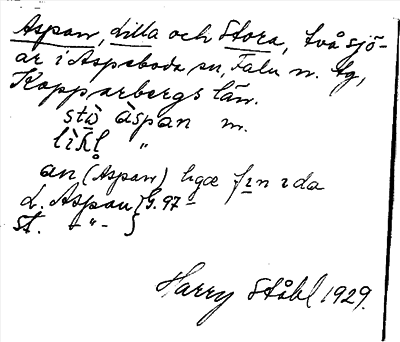 Aspan, Lilla och Stora, två sjö-
ar i Aspeboda sn, Falu n. tg,
Kopparbergs län.
stò̄ àspan m.
lìḥl "
ån (Aspan) ligæ fın ıda
L. Aspan } G. 97
st. - " - }
Harry Ståhl 1929.